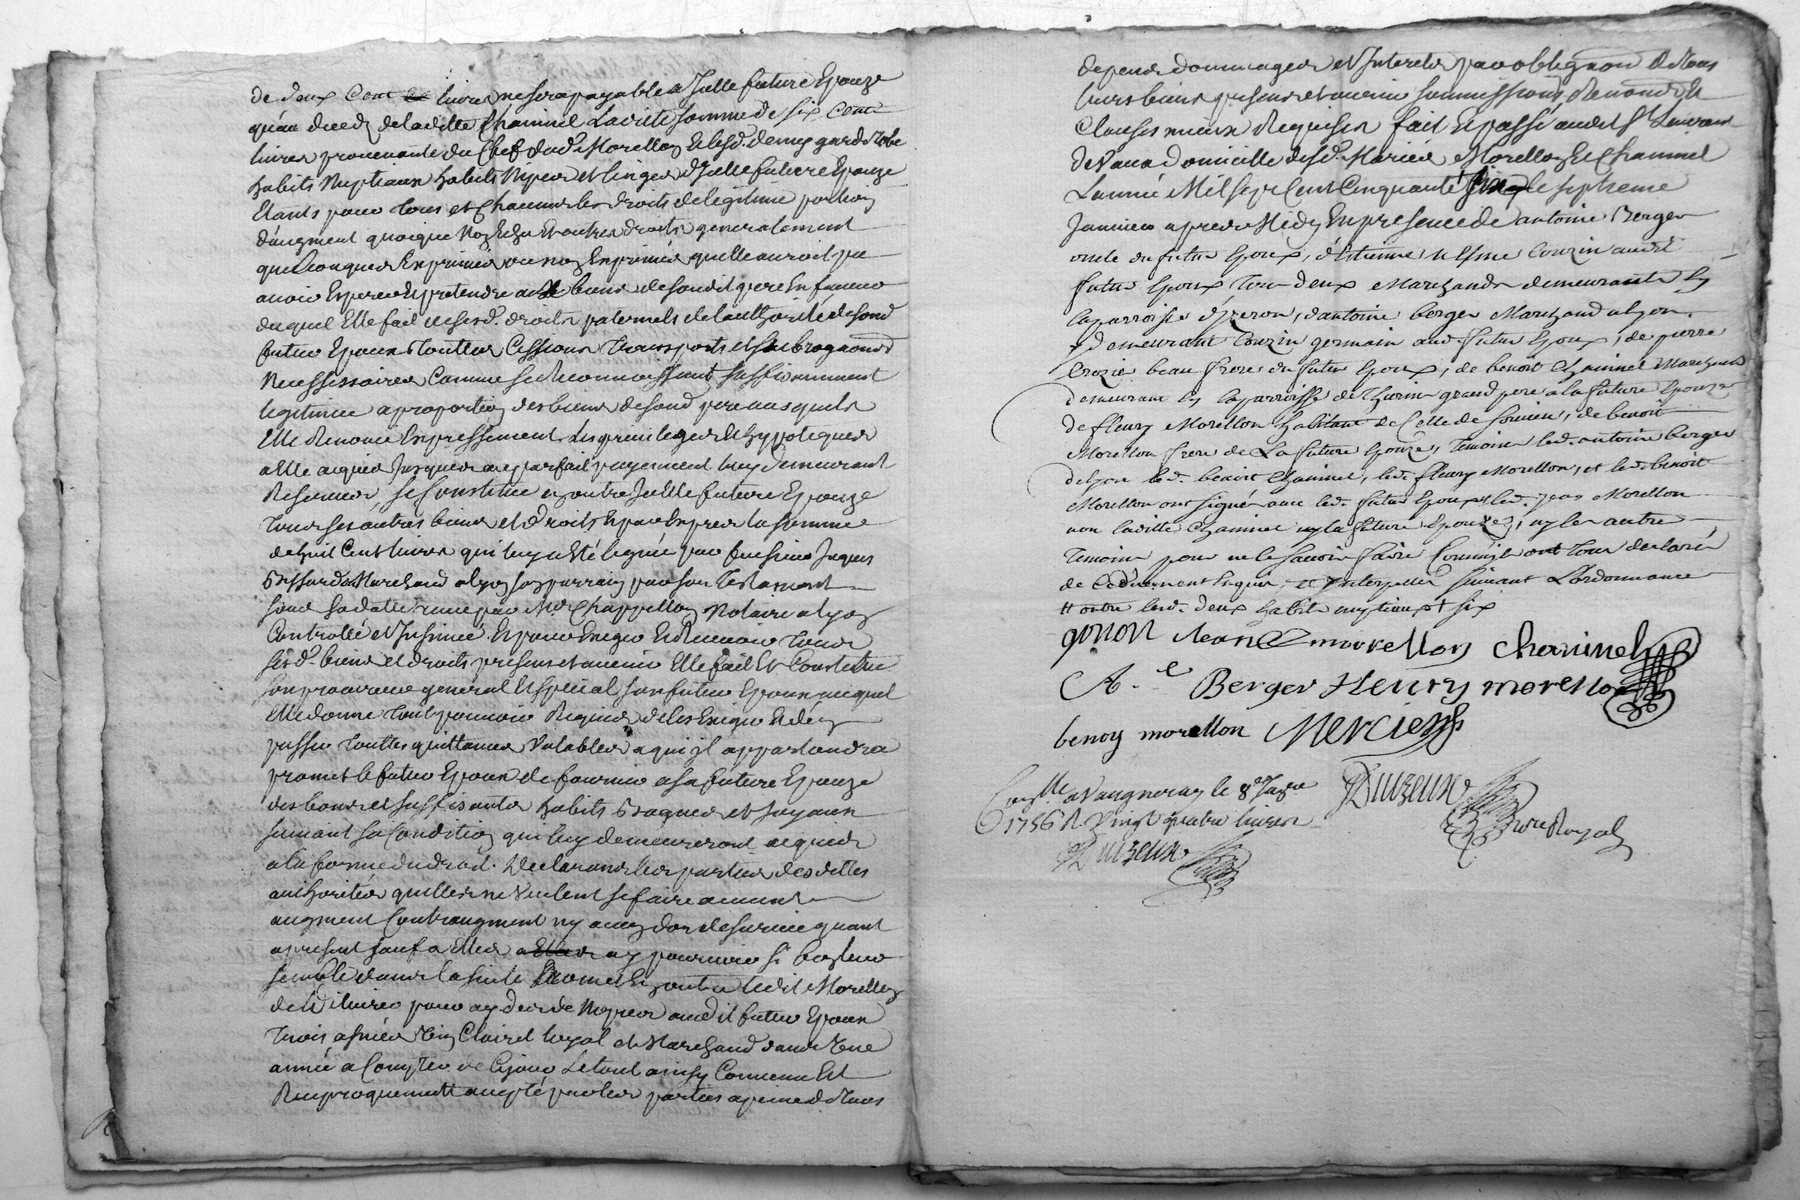 de deux cent livres ne sera payable a jcelle future Epouze
qu'au deced de laditte Chaminel laditte somme de six cent
livres provenante du Chef dud. Morellon Et lesd. demy garde Robe
habits Nuptiaux habits Noces et linges d'jcelle future Epouze
Etants pour tous et chacuns les droits de legitime portion
d'augment quoque Nox Eche Et autres droits generalement
quelconques Exprimés ou non Exprimés quelle auroit pu
avoir Esperer Et pretendre aux biens de sondit pere En faveur
duquel Elle fait de sesd. droits paternels et de l'authorité de sond
futur Epoux touttes Cessions transports et subrogaons
Necessaires Comme se Reconnoissant suffisamment
legitimée a proportion des biens de sond pere ausquels
Elle Renonce Expressement les privileges Et hypoteques
a Elle acquis jusques au parfait payement luy demeurant
Reservés, se Constitue en outre jcelle future Epouze
tous ses autres biens et droits Et par Exprès la somme
de huit Cent livres qui luy a Eté leguée par feu sieur jaques
Marchand a lyon son parrain par son testament
sous sa datte reçu par Me Chappellon Notaire a lyon
Controllé et jnsinué. Et pour Exiger Et Recevoir tous
sesd. biens et droits presens et avenir Elle fait Et Constitue
son procureur general Et special son futur Epoux auquel
Elle donne tout pouvoir Requis de les Exiger Et d'en
passer touttes quittances Valables a qui jl appartiendra
promet le futur Epoux de fournir a sa future Epouze
des bons et suffisants habits Bagues et joyaux
suivant sa Condition qui luy demeureront acquis
a la forme du droit. Declarans les parties desdittes
authorités quelles ne Veulent se faire aucun
augment Contraugment ny aucun don de survie quant
a present sauf a Elles a y pourvoir si bon leur
semble dans la suite promet En outre ledit Morellon
de livrer pour ayder de Noces audit futur Epoux
trois asnées Vin Clairet loyal et Marchand dans une
année a Compter de Cejour Le tout ainsy Convenu Et
Reciproquement accepté par les parties a peine de tous
depens dommages et Interets par obligaon de tous
leurs biens presens et avenir soumissions, Renonces Et
Clauses mieux Requises fait Et passé audit St Laurent
de Vaux domicille desd. Mariés Morellon Et Chaminel
L'année Mil sept Cent Cinquante six le septieme
Janvier apres Midy En presence de antoine Berger
oncle du futur Epoux, d'Estienne cousin audit
futur Epoux tous deux Marchands demeurants en
la parroisse d'yzeron, d'antoine berger Marchand a lyon
y demeurant Couzin germain aud. futur Epoux, de pierre
Crozier beau frere du futur Epoux, de benoit Chaminel Marchand
demeurant en la parroisse de thurin grand pere a la future Epouze
de fleury Morellon habitant de Celle de Soucieu, de benoit
Morellon frere de La future Epouze, temoins led. antoine berger
de lyon led. benoit Chaminel, led. fleury Morellon, et led. benoit
Morellon ont signé avec led. futur Epoux et led. jean Morellon
non laditte Chaminel ny la future Epouze, ny les autre
temoins pour ne le savoir faire Comme jls ont tous declaré
de Ce duement Enquis et jnterpellés suivant L'ordonnance
# outre lesd. deux habits nuptiaux + six
gonon Jean morellon chaminel
A.e Berger Henry morellon
benoy morellon Mercier
Conllé a Vaugneray le 8e Janv
1756 R Vingt quatre livres